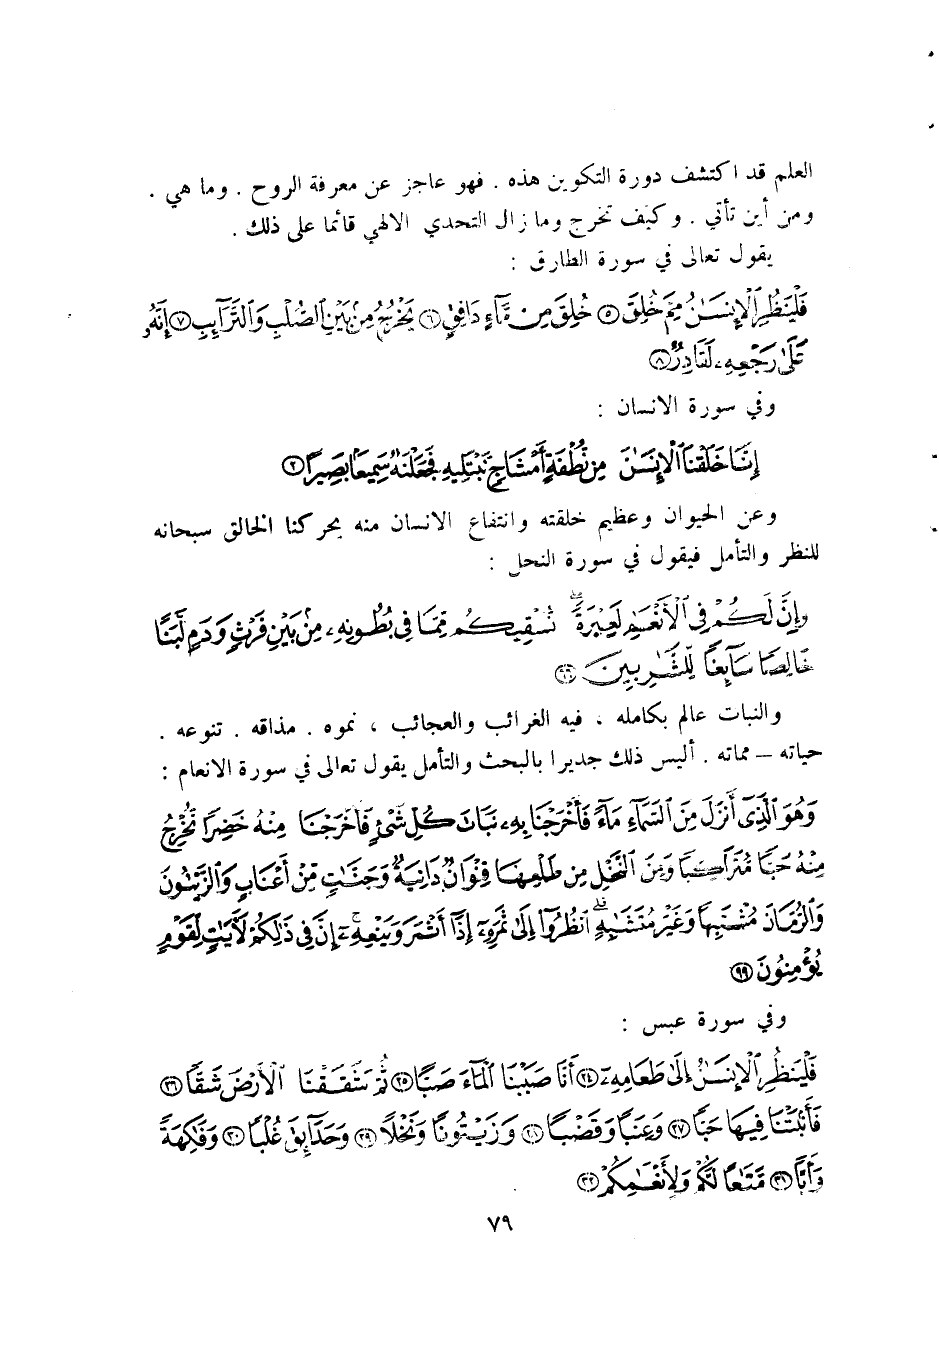 العلم قد اكتشف دورة التكوين هذه . فهو عاجز عن معرفة الروح . وما هي .
ومن أين تأتي . وكيف تخرج وما زال التحدي الالهي قائما على ذلك .
يقول تعالى في سورة الطارق :
فَلْيَنظُرِ ٱلْإِنسَـٰنُ مِمَّ خُلِقَ ⑤ خُلِقَ مِن مَّآءٍ دَافِقٍ ⑥ يَخْرُجُ مِنۢ بَيْنِ ٱلصُّلْبِ وَٱلتَّرَآئِبِ ⑦ إِنَّهُۥ
عَلَىٰ رَجْعِهِۦ لَقَادِرٌ ⑧
وفي سورة الانسان :
إِنَّا خَلَقْنَا ٱلْإِنسَـٰنَ مِن نُّطْفَةٍ أَمْشَاجٍ نَّبْتَلِيهِ فَجَعَلْنَـٰهُ سَمِيعًۢا بَصِيرًا ②
وعن الحيوان وعظيم خلقته وانتفاع الانسان منه يحركنا الخالق سبحانه
للنظر والتأمل فيقول في سورة النحل :
وَإِنَّ لَكُمْ فِى ٱلْأَنْعَـٰمِ لَعِبْرَةً ۖ نُّسْقِيكُم مِّمَّا فِى بُطُونِهِۦ مِنۢ بَيْنِ فَرْثٍ وَدَمٍ لَّبَنًا
خَالِصًا سَآئِغًا لِّلشَّـٰرِبِينَ ٦٦
والنبات عالم بكامله ، فيه الغرائب والعجائب ، نموه . مذاقه . تنوعه .
حياته – مماته . أليس ذلك جديرا بالبحث والتأمل يقول تعالى في سورة الانعام :
وَهُوَ ٱلَّذِىٓ أَنزَلَ مِنَ ٱلسَّمَآءِ مَآءً فَأَخْرَجْنَا بِهِۦ نَبَاتَ كُلِّ شَىْءٍ فَأَخْرَجْنَا مِنْهُ خَضِرًا نُّخْرِجُ
مِنْهُ حَبًّا مُّتَرَاكِبًا وَمِنَ ٱلنَّخْلِ مِن طَلْعِهَا قِنْوَانٌ دَانِيَةٌ وَجَنَّـٰتٍ مِّنْ أَعْنَابٍ وَٱلزَّيْتُونَ
وَٱلرُّمَّانَ مُشْتَبِهًا وَغَيْرَ مُتَشَـٰبِهٍ ۗ ٱنظُرُوٓا۟ إِلَىٰ ثَمَرِهِۦٓ إِذَآ أَثْمَرَ وَيَنْعِهِۦٓ ۚ إِنَّ فِى ذَٰلِكُمْ لَـَٔايَـٰتٍ لِّقَوْمٍ
يُؤْمِنُونَ ٩٩
وفي سورة عبس :
فَلْيَنظُرِ ٱلْإِنسَـٰنُ إِلَىٰ طَعَامِهِۦٓ ٢٤ أَنَّا صَبَبْنَا ٱلْمَآءَ صَبًّا ٢٥ ثُمَّ شَقَقْنَا ٱلْأَرْضَ شَقًّا ٢٦
فَأَنۢبَتْنَا فِيهَا حَبًّا ٢٧ وَعِنَبًا وَقَضْبًا ٢٨ وَزَيْتُونًا وَنَخْلًا ٢٩ وَحَدَآئِقَ غُلْبًا ٣٠ وَفَـٰكِهَةً
وَأَبًّا ٣١ مَّتَـٰعًا لَّكُمْ وَلِأَنْعَـٰمِكُمْ ٣٢
٧٩